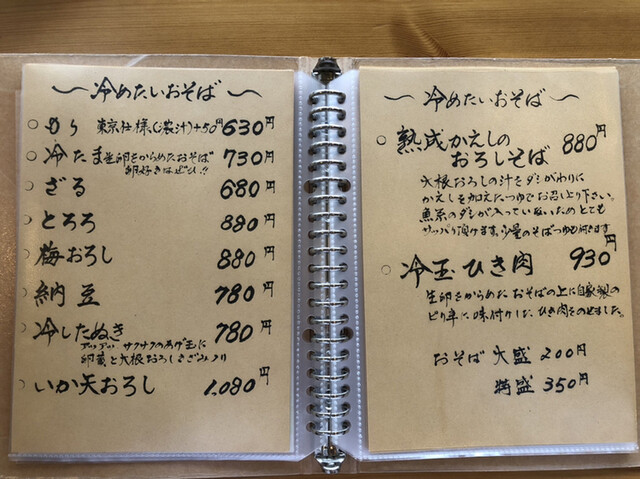 〜冷めたいおそば〜
○ もり 東京仕様(濃汁)+50円 630円
○ 冷たま 生卵をからめたおそば 730円
卵好きはぜひ!!
○ ざる 680円
○ とろろ 880円
○ 梅おろし 880円
○ 納豆 780円
○ 冷したぬき 780円
サクサクのあげ玉に
卵黄と大根おろしきざみのり
○ いか天おろし 1,080円
〜冷めたいおそば〜
○ 熟成かえしの 880円
おろしそば
大根おろしの汁をダシがわりに
かえしを加えたつゆでお召し上り下さい。
魚系のダシが入っていないためとても
サッパリ頂けます。少量のそばつゆも付きます
○ 冷玉ひき肉 930円
生卵をからめたおそばの上に自家製の
ピリ辛に味付けしたひき肉をのせました。
おそば 大盛 200円
特盛 350円